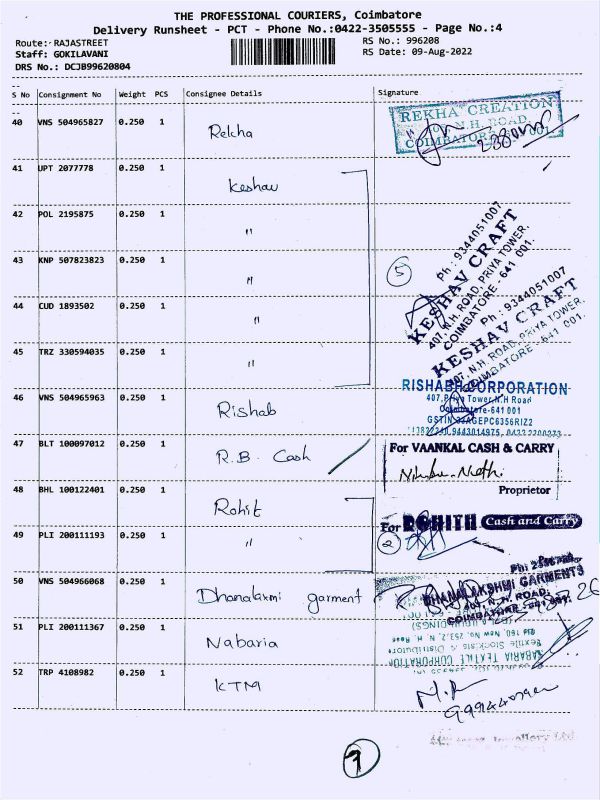 THE PROFESSIONAL COURIERS, Coimbatore
Delivery Runsheet - PCT - Phone No.:0422-3505555 - Page No.:4
Route:- RAJASTREET
RS No.: 996208
Staff: GOKILAVANI
RS Date: 09-Aug-2022
DRS No.: DCJB99620804
S No Consignment No Weight PCS Consignee Details Signature
40 VNS 504965827 0.250 1 Rekha
REKHA CREATION
N.H ROAD,
COIMBATORE 001
41 UPT 2077778 0.250 1 Keshav
42 POL 2195875 0.250 1 "
43 KNP 507823823 0.250 1 "
44 CUD 1893502 0.250 1 "
45 TRZ 330594035 0.250 1 "
5
Ph : 9344051007
KESHAV CRAFT
407, N.H. ROAD, PRIYA TOWER.
COIMBATORE - 641 001.
Ph : 9344051007
KESHAV CRAFT
407, N.H. ROAD, PRIYA TOWER.
COIMBATORE - 641 001.
46 VNS 504965963 0.250 1 Rishab
RISHABH CORPORATION
407, Priya Tower, N.H Road
Coimbatore-641 001
47 BLT 100097012 0.250 1 R.B. Cash
For VAANKAL CASH & CARRY
Proprietor
48 BHL 100122401 0.250 1 Rohit
49 PLI 200111193 0.250 1 "
2
For ROHITH Cash and Carry
50 VNS 504966068 0.250 1 Dhanalaxmi garment
DHANALAKSHMI GARMENTS
407, N.H. ROAD,
COIMBATORE - 641 001.
51 PLI 200111367 0.250 1 Nabaria
NABARIA TEXTILE CORPORATION
Textile Stockists & Distributors
Old 160, New No. 253, 2, N. H. Road
52 TRP 4108982 0.250 1 KTM